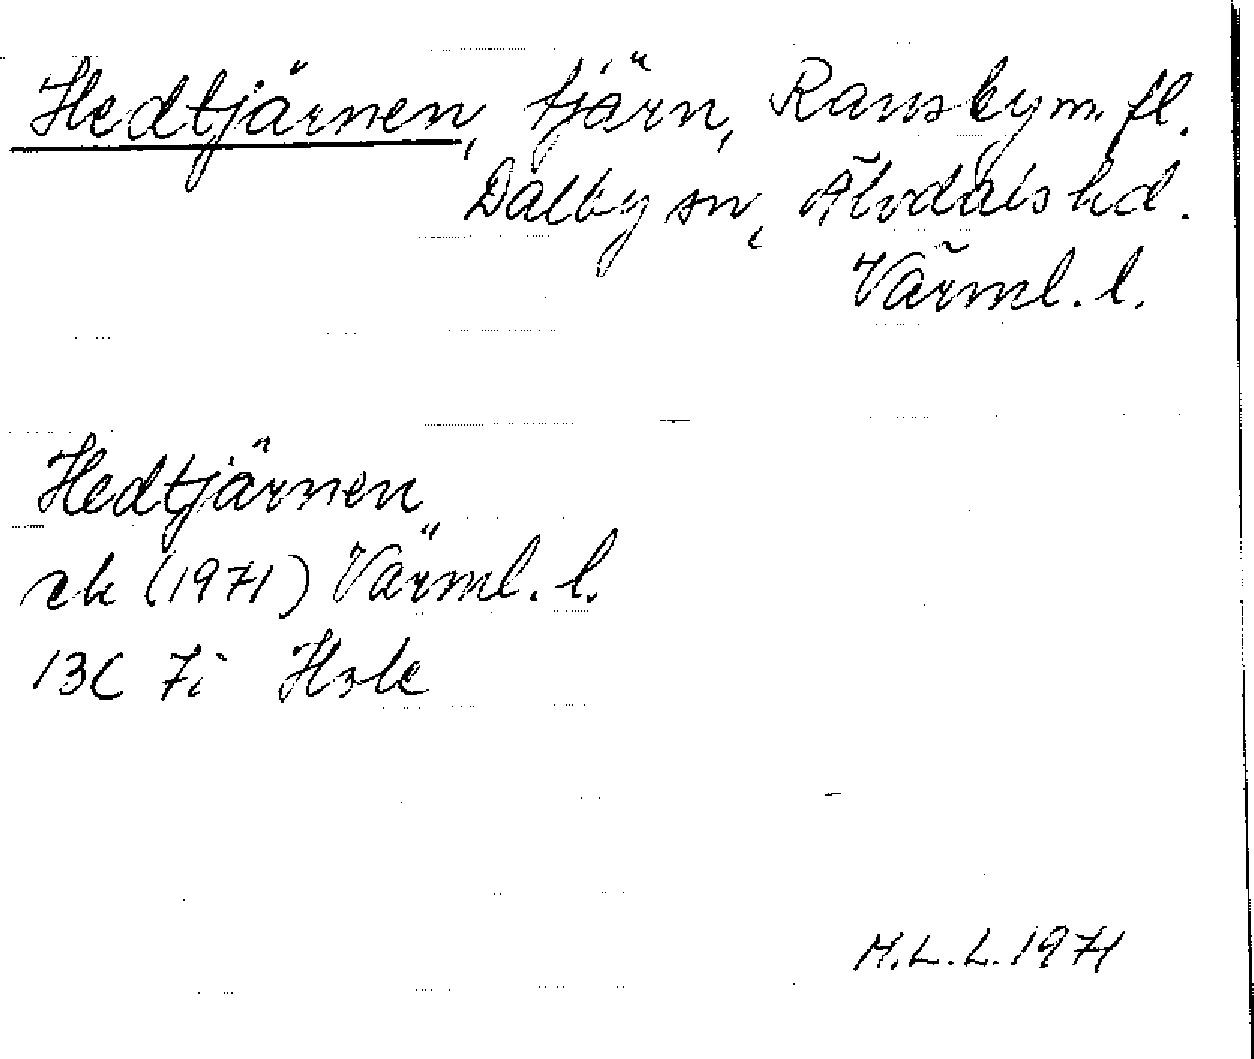 Hedtjärnen, tjärn, Ransby m. fl.
Dalby sn, Älvdals hd.
Värml. l.
Hedtjärnen
ek (1971) Värml. l.
13C 7i Hole
M.L.L. 1971